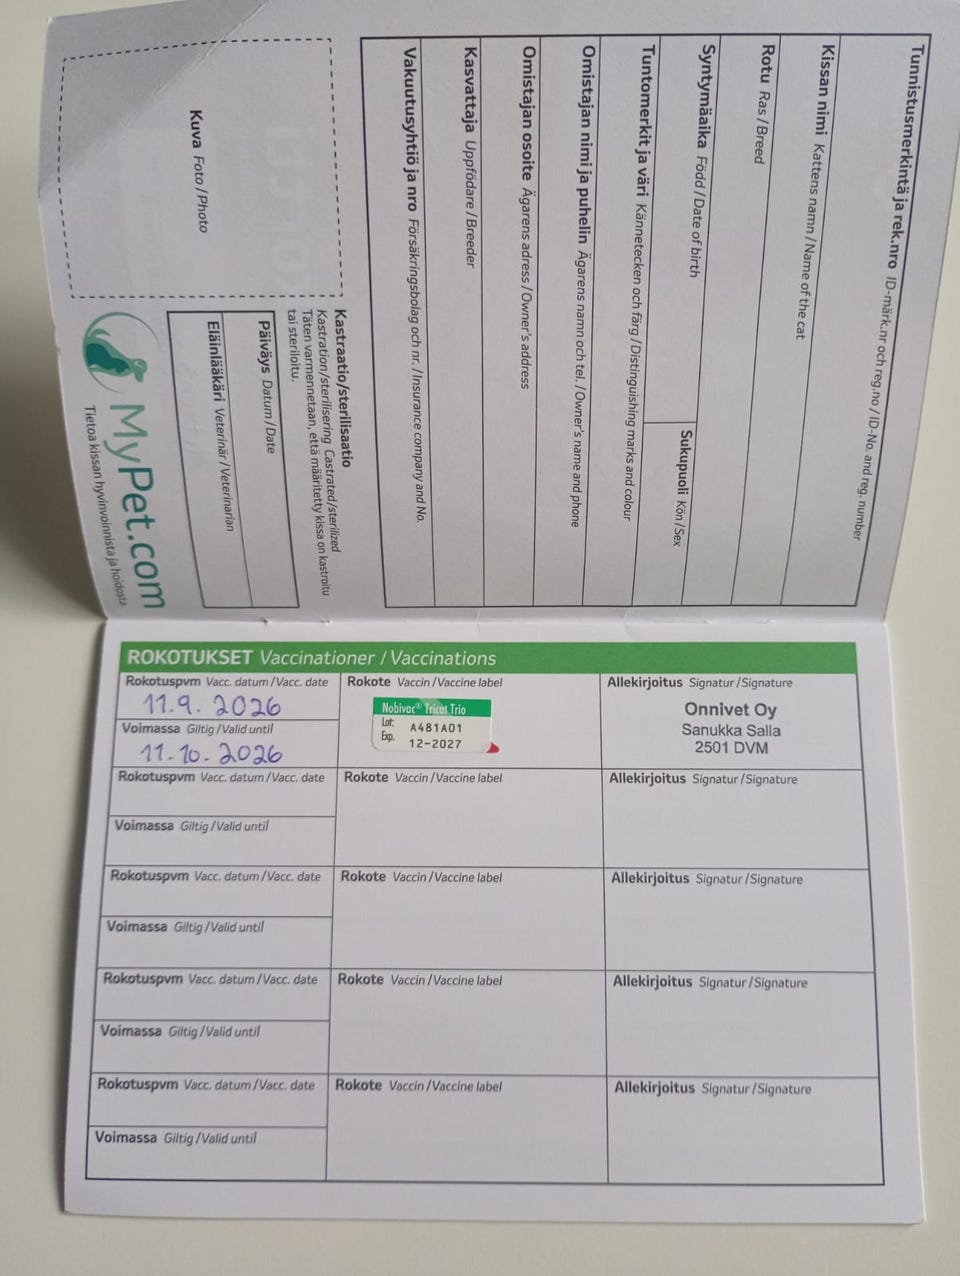 Tunnistusmerkintä ja rek.nro ID-märk.nr och reg.no / ID-No. and reg. number
Kissan nimi Kattens namn / Name of the cat
Rotu Ras / Breed
Syntymäaika Född / Date of birth
Sukupuoli Kön / Sex
Tuntomerkit ja väri Kännetecken och färg / Distinguishing marks and colour
Omistajan nimi ja puhelin Ägarens namn och tel. / Owner's name and phone
Omistajan osoite Ägarens adress / Owner's address
Kasvattaja Uppfödare / Breeder
Vakuutusyhtiö ja nro Försäkringsbolag och nr. / Insurance company and No.
Kuva Foto / Photo
Kastraatio/sterilisaatio
Kastration/sterilisering Castrated/sterilized
Täten varmennetaan, että määritetty kissa on kastroitu
tai steriloitu.
Päiväys Datum / Date
Eläinlääkäri Veterinär / Veterinarian
MyPet.com
Tietoa kissan hyvinvoinnista ja hoidosta.
ROKOTUKSET Vaccinationer / Vaccinations
Rokotuspvm Vacc. datum / Vacc. date
11.9. 2026
Voimassa Giltig / Valid until
11.10. 2026
Rokote Vaccin / Vaccine label
Nobivac® Tricat Trio
Lot: A481A01
Exp. 12-2027
Allekirjoitus Signatur / Signature
Onnivet Oy
Sanukka Salla
2501 DVM
Rokotuspvm Vacc. datum / Vacc. date
Voimassa Giltig / Valid until
Rokote Vaccin / Vaccine label
Allekirjoitus Signatur / Signature
Rokotuspvm Vacc. datum / Vacc. date
Voimassa Giltig / Valid until
Rokote Vaccin / Vaccine label
Allekirjoitus Signatur / Signature
Rokotuspvm Vacc. datum / Vacc. date
Voimassa Giltig / Valid until
Rokote Vaccin / Vaccine label
Allekirjoitus Signatur / Signature
Rokotuspvm Vacc. datum / Vacc. date
Voimassa Giltig / Valid until
Rokote Vaccin / Vaccine label
Allekirjoitus Signatur / Signature